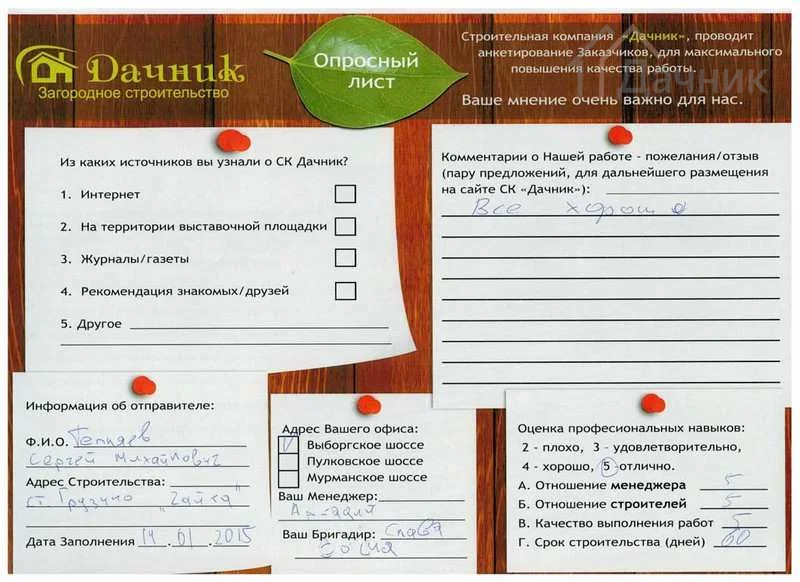 Дачник
Загородное строительство
Опросный
лист
Строительная компания «Дачник», проводит
анкетирование Заказчиков, для максимального
повышения качества работы.
Дачник
Ваше мнение очень важно для нас.
Из каких источников вы узнали о СК Дачник?
1. Интернет
2. На территории выставочной площадки
3. Журналы/газеты
4. Рекомендация знакомых/друзей
5. Другое
Комментарии о Нашей работе - пожелания/отзыв
(пару предложений, для дальнейшего размещения
на сайте СК «Дачник»):
Все хорошо
Информация об отправителе:
Ф.И.О.
Сергей Михайлович
Адрес Строительства:
ст. Грузино "Чайка"
Дата Заполнения 14.01.2015
Адрес Вашего офиса:
V Выборгское шоссе
Пулковское шоссе
Мурманское шоссе
Ваш Менеджер:
Ваш Бригадир: Слава
Оценка професиональных навыков:
2 - плохо, 3 - удовлетворительно,
4 - хорошо, 5 - отлично.
А. Отношение менеджера 5
Б. Отношение строителей 5
В. Качество выполнения работ 5
Г. Срок строительства (дней) 60